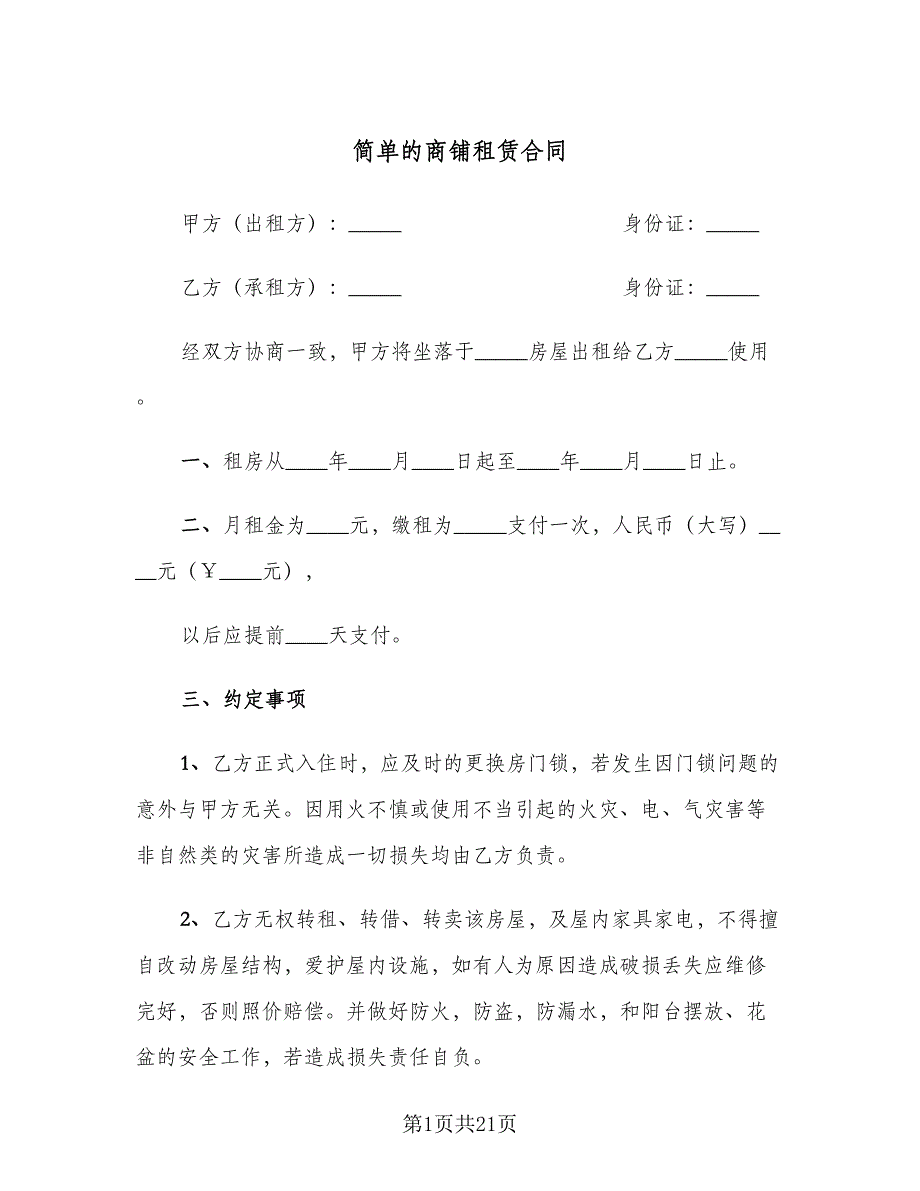 简单的商铺租赁合同
甲方（出租方）：_____ 身份证：_____
乙方（承租方）：_____ 身份证：_____
经双方协商一致，甲方将坐落于_____房屋出租给乙方_____使用
。
一、租房从____年____月____日起至____年____月____日止。
二、月租金为____元，缴租为_____支付一次，人民币（大写）__
__元（￥____元），
以后应提前____天支付。
三、约定事项
1、乙方正式入住时，应及时的更换房门锁，若发生因门锁问题的
意外与甲方无关。因用火不慎或使用不当引起的火灾、电、气灾害等
非自然类的灾害所造成一切损失均由乙方负责。
2、乙方无权转租、转借、转卖该房屋，及屋内家具家电，不得擅
自改动房屋结构，爱护屋内设施，如有人为原因造成破损丢失应维修
完好，否则照价赔偿。并做好防火，防盗，防漏水，和阳台摆放、花
盆的安全工作，若造成损失责任自负。
第1页共21页